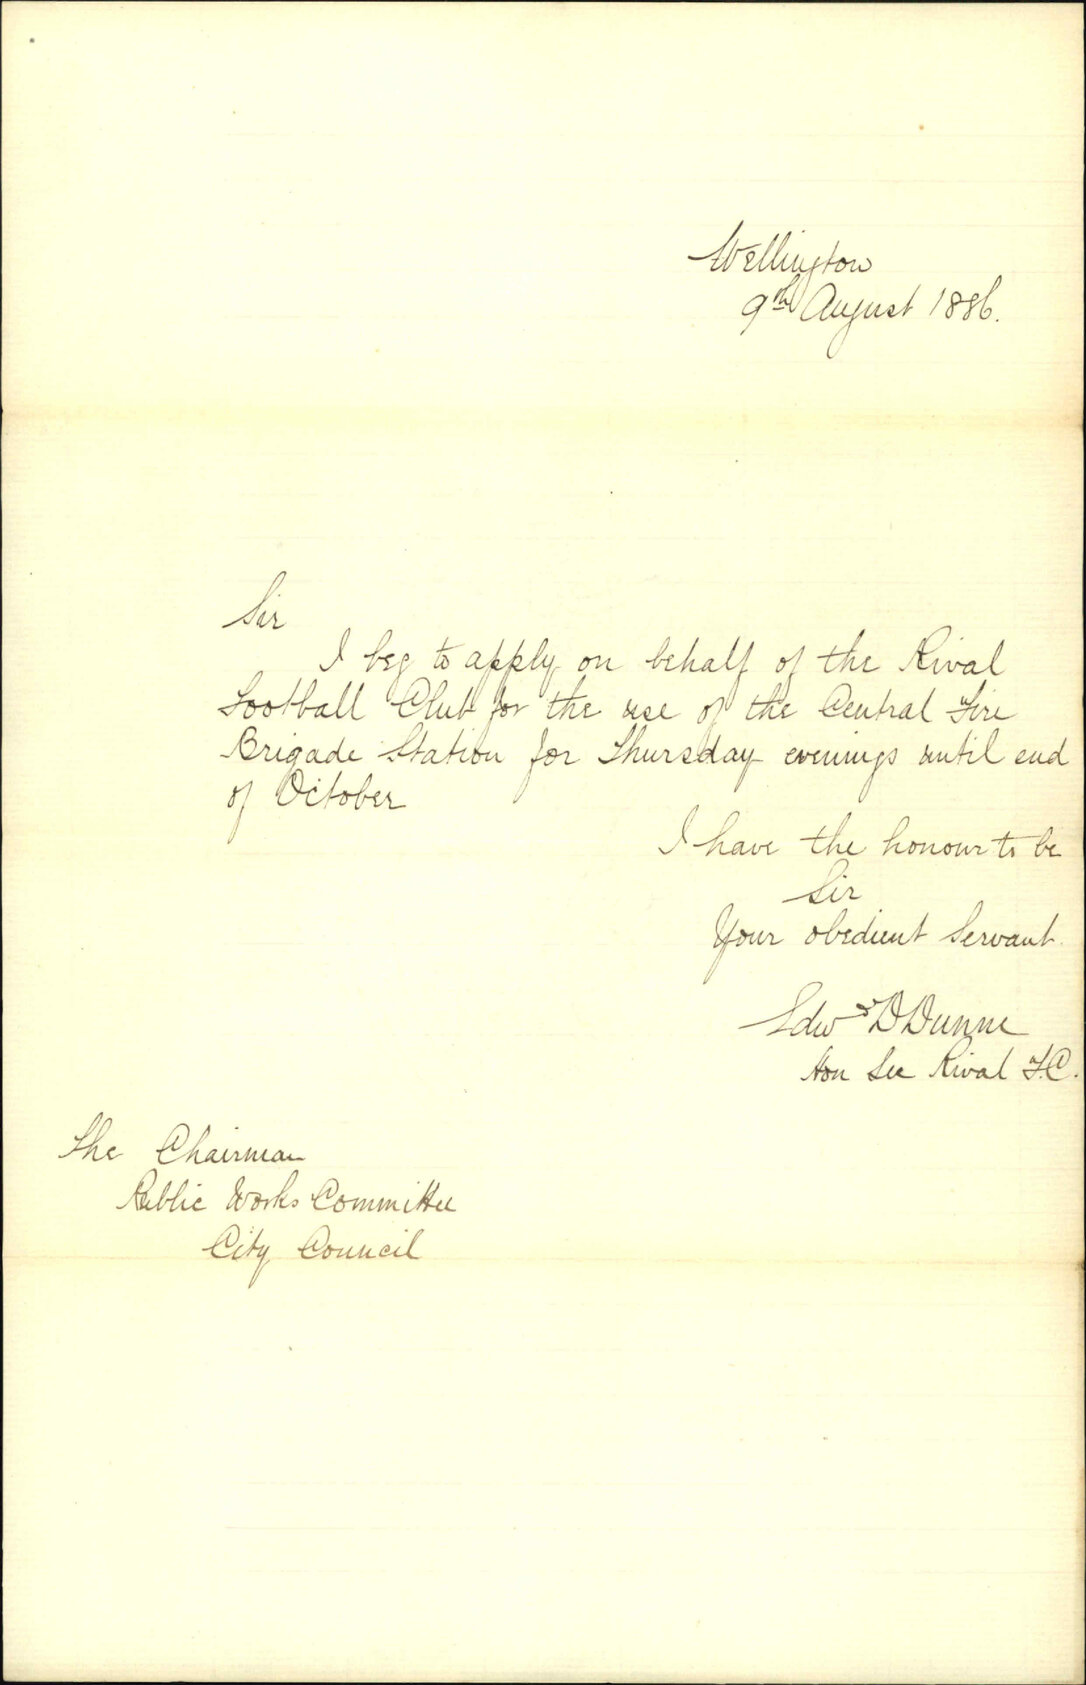 Wellington
9th August 1886.
Sir
I beg to apply on behalf of the Rival
Football Club for the use of the Central Fire
Brigade Station for Thursday evenings until end
of October
I have the honour to be
Sir
Your obedient Servant.
Edwd D Dunne
Hon Sec Rival F.C.
The Chairman
Public Works Committee
City Council